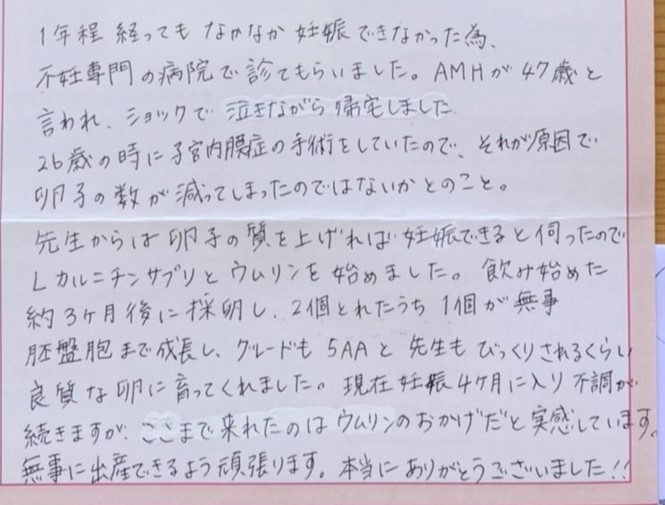 1年程 経っても なかなか 妊娠できなかった為、
不妊専門の病院で診てもらいました。AMHが47歳と
言われ、ショックで 泣きながら帰宅しました
26歳の時に子宮内膜症の手術をしていたので、それが原因で
卵子の数が減ってしまったのではないかとのこと。
先生からは卵子の質を上げれば妊娠できると伺ったので
Lカルニチンサプリとウムリンを始めました。飲み始めた
約3ヶ月後に採卵し、2個とれたうち1個が無事
胚盤胞まで成長し、グレードも5AAと先生もびっくりされるくらい
良質な卵に育ってくれました。現在妊娠4ヶ月に入り不調が
続きますが、ここまで来れたのはウムリンのおかげだと実感しています。
無事に出産できるよう頑張ります。本当にありがとうございました!!